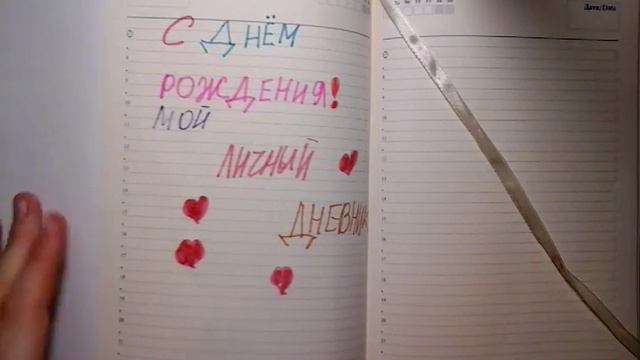 С ДНЁМ
РОЖДЕНИЯ!
МОЙ
ЛИЧНЫЙ
ДНЕВНИК
Дата/Date